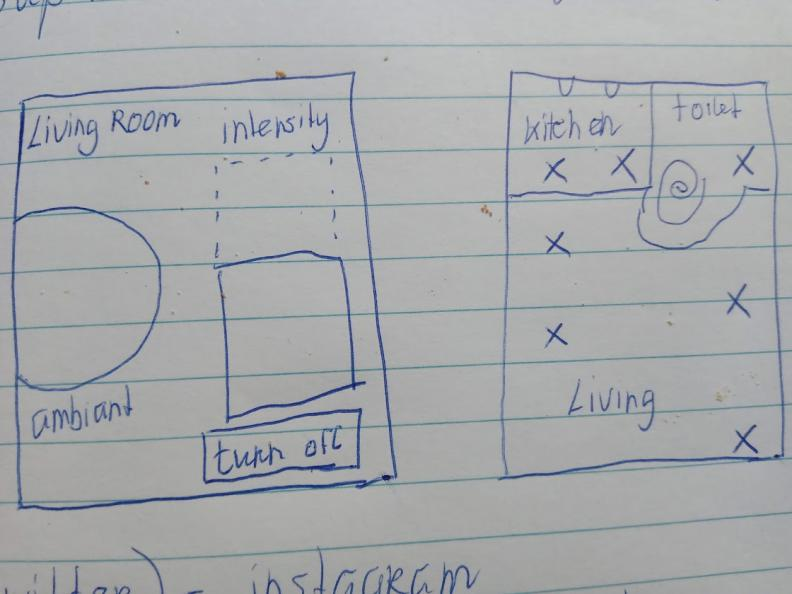 Living Room
intensity
ambiant
turn off
kitchen
toilet
Living
- instagram